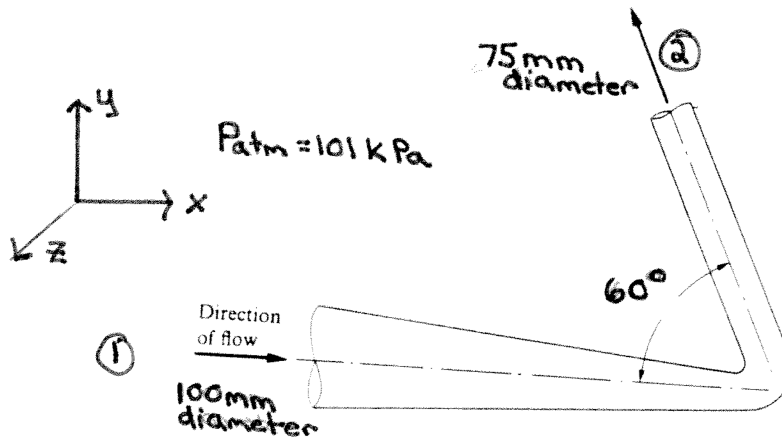 75mm
diameter
②
y
Patm = 101 kPa
x
z
60°
Direction
of flow
①
100mm
diameter